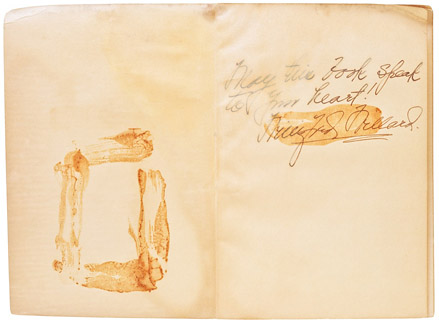 May this book speak
to your heart!
Willard.